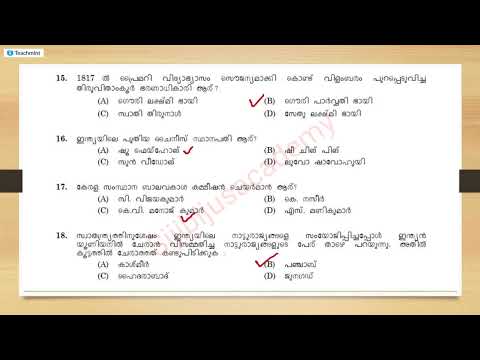 Teachmint
15. 1817 ൽ പ്രൈമറി വിദ്യാഭ്യാസം സൌജന്യമാക്കി കൊണ്ട് വിളംബരം പുറപ്പെടുവിച്ച
തിരുവിതാംകൂർ ഭരണാധികാരി ആര് ?
(A) ഗൌരി ലക്ഷ്മി ഭായി (B) ഗൌരി പാർവ്വതി ഭായി
(C) സ്വാതി തിരുനാൾ (D) സേതു ലക്ഷ്മി ഭായി
16. ഇന്ത്യയിലെ പുതിയ ചൈനീസ് സ്ഥാനപതി ആര്?
(A) ഷൂ ഫെയ്ഹോങ് (B) ഷി ചിങ് പിങ്
(C) സുൻ വീഡോങ് (D) ലുവോ ഷാവോഹുയി
17. കേരള സംസ്ഥാന ബാലവകാശ കമ്മീഷൻ ചെയർമാൻ ആര്?
(A) സി. വിജയകുമാർ (B) കെ. നസീർ
(C) കെ.വി. മനോജ് കുമാർ (D) എസ്. മണികുമാർ
18. സ്വാതന്ത്ര്യത്തിനുശേഷം ഇന്ത്യയിലെ നാട്ടുരാജ്യങ്ങളെ സംയോജിപ്പിച്ചപ്പോൾ ഇന്ത്യൻ
യൂണിയനിൽ ചേരാൻ വിസമ്മതിച്ച നാട്ടുരാജ്യങ്ങളുടെ പേര് താഴെ പറയുന്നു. അതിൽ
കൂട്ടത്തിൽ ചേരാത്തത് കണ്ടുപിടിക്കുക :
(A) കാശ്മീർ (B) പഞ്ചാബ്
(C) ഹൈദരാബാദ് (D) ജുനഗഡ്